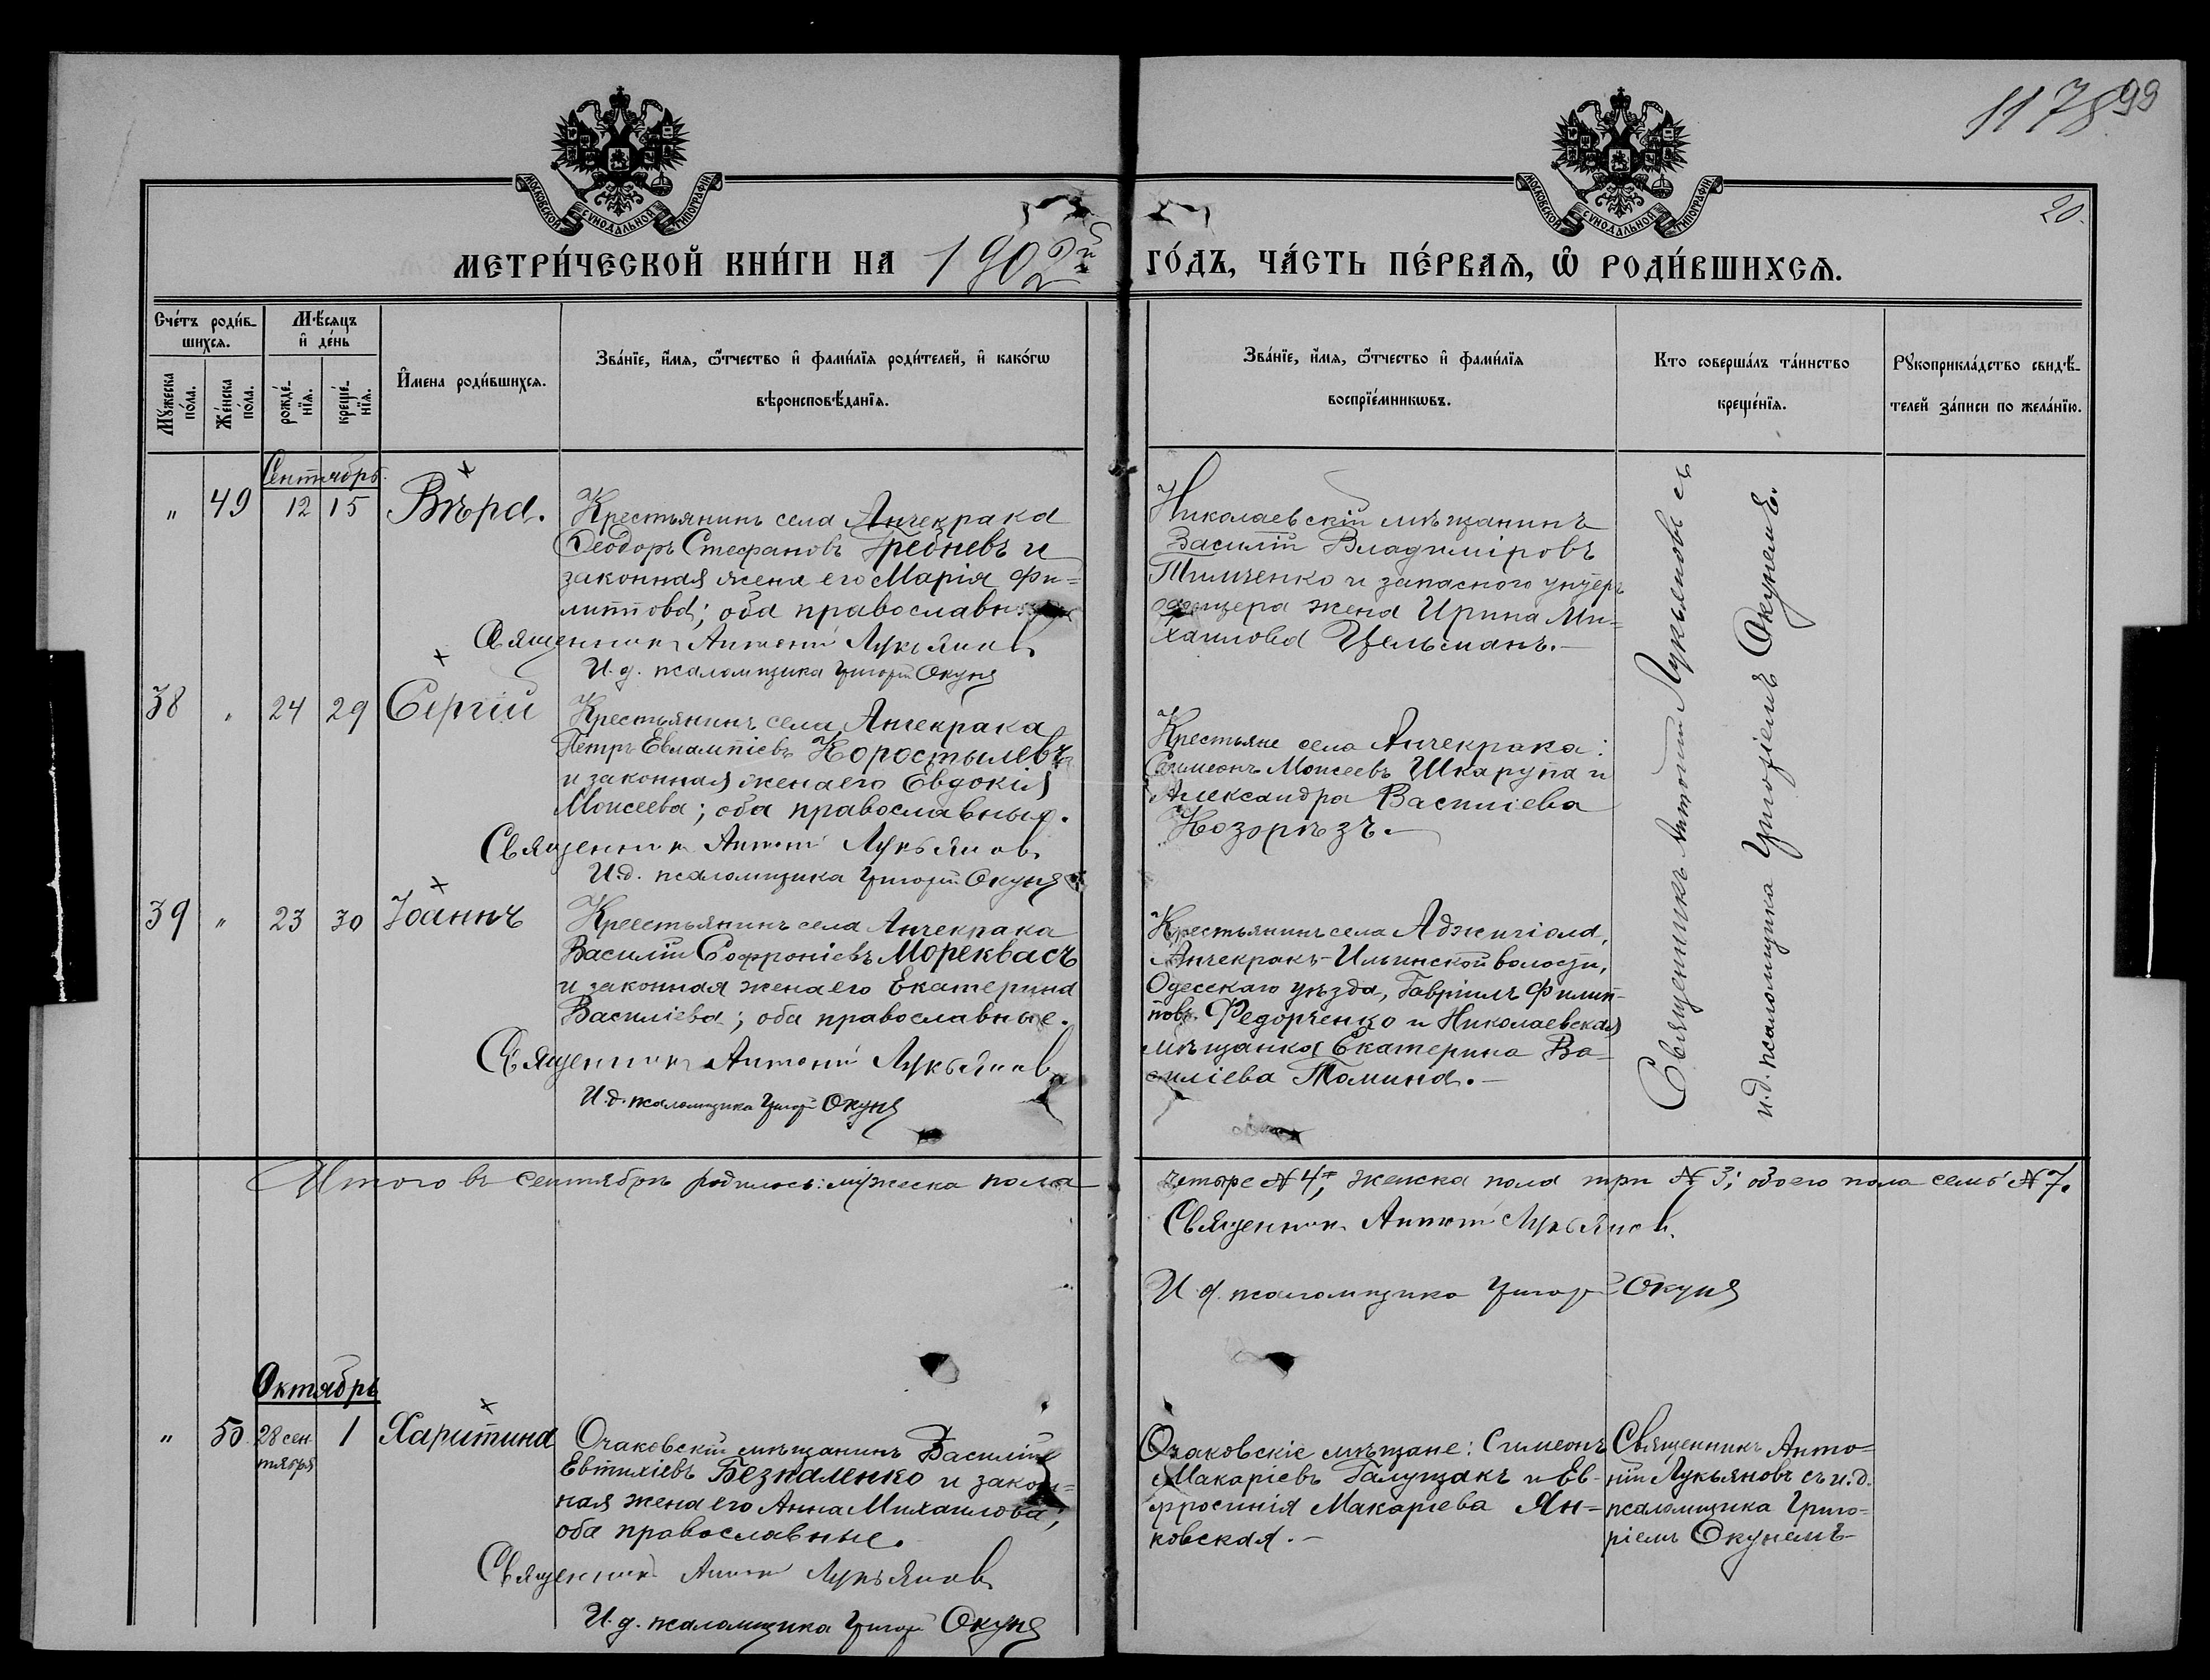 11 78 99
20.
МОСКОВСКОЙ СѴНОДАЛЬНОЙ ТИПОГРАФІИ
МОСКОВСКОЙ СѴНОДАЛЬНОЙ ТИПОГРАФІИ
МЕТРИ́ЧЕСКОЙ КНИ́ГИ НА 1902й ГО́ДЪ, ЧА́СТЬ ПЕ́РВАѦ, Ѡ҆ РОДИ́ВШИХСѦ.
Сче́тъ роди́в-
шихсѧ.
Мѣ́сѧцъ
и҆ де́нь
Мꙋ́жеска
по́ла.
Же́нска
по́ла.
рожде́-
нїѧ.
креще́-
нїѧ.
И҆мена роди́вшихсѧ.
Зва́нїе, и҆́мѧ, ѻ҆́тчество и҆ фами́лїѧ роди́телей, и҆ како́гѡ
вѣроисповѣ́данїѧ.
Зва́нїе, и҆́мѧ, ѻ҆́тчество и҆ фами́лїѧ
воспрїе́мникѡвъ.
Кто соверша́лъ та́инство
креще́нїѧ.
Рꙋкоприкла́дство свидѣ́-
телей за́писи по жела́нїю.
Сентябрь.
" 49 12 15 Вѣра.
Крестьянинъ села Анчекрака
Ѳеодоръ Стефановъ Гребневъ и
законная жена его Марія Фи=
липпова; оба православные
Священникъ Антоній Лукьяновъ
И. д. псаломщика Григорій Окунь
Николаевскій мѣщанинъ
Василій Владиміровъ
Тимченко и запаснаго унтеръ
офицера жена Ирина Ми=
хаилова Цельсманъ.–
38 " 24 29 Сергій
Крестьянинъ села Анчекрака
Петръ Евлампіевъ Коростылевъ
и законная жена его Евдокія
Моисеева; оба православныя.
Священникъ Антоній Лукьяновъ
И.д. псаломщика Григорій Окунь
Крестьяне села Анчекрака:
Симеонъ Моисеевъ Шкарупа и
Александра Василіева
Козорѣзъ.–
39 " 23 30 Іоаннъ
Креестьянинъ села Анчекрака
Василій Софроніевъ Мореквасъ
и законная жена его Екатерина
Василіева; оба православные.
Священникъ Антоній Лукьяновъ
И.д. псаломщика Григорій Окунь
Крестьянинъ села Аджигіола,
Анчекракъ-Ильинской волости,
Одесскаго уѣзда, Гавріилъ Филип-
повъ Федорченко и Николаевская
мѣщанка Екатерина Ва-
силіева Томина.–
Священникъ Антоній Лукьяновъ съ
и.д. псаломщика Григоріемъ Окунемъ.
Итого въ сентябрѣ родилось: мужеска пола четыре № 4, женска пола три № 3; обоего пола семь № 7.
Священникъ Антоній Лукьяновъ.
И. д. псаломщика Григорій Окунь
Октябрь
" 50 28 сен- 1 Харитина
тября
Очаковскій мѣщанинъ Василій
Евтихіевъ Безпаленко и закон=
ная жена его Анна Михаилова;
оба православные.
Священникъ Антоній Лукьяновъ
И. д. псаломщика Григорій Окунь
Очаковскіе мѣщане: Симеонъ
Макаріевъ Галущакъ и Ев-
фросинія Макаріева Ян=
ковская.–
Священникъ Анто=
ній Лукьяновъ съ и.д.
псаломщика Григо=
ріемъ Окунемъ–